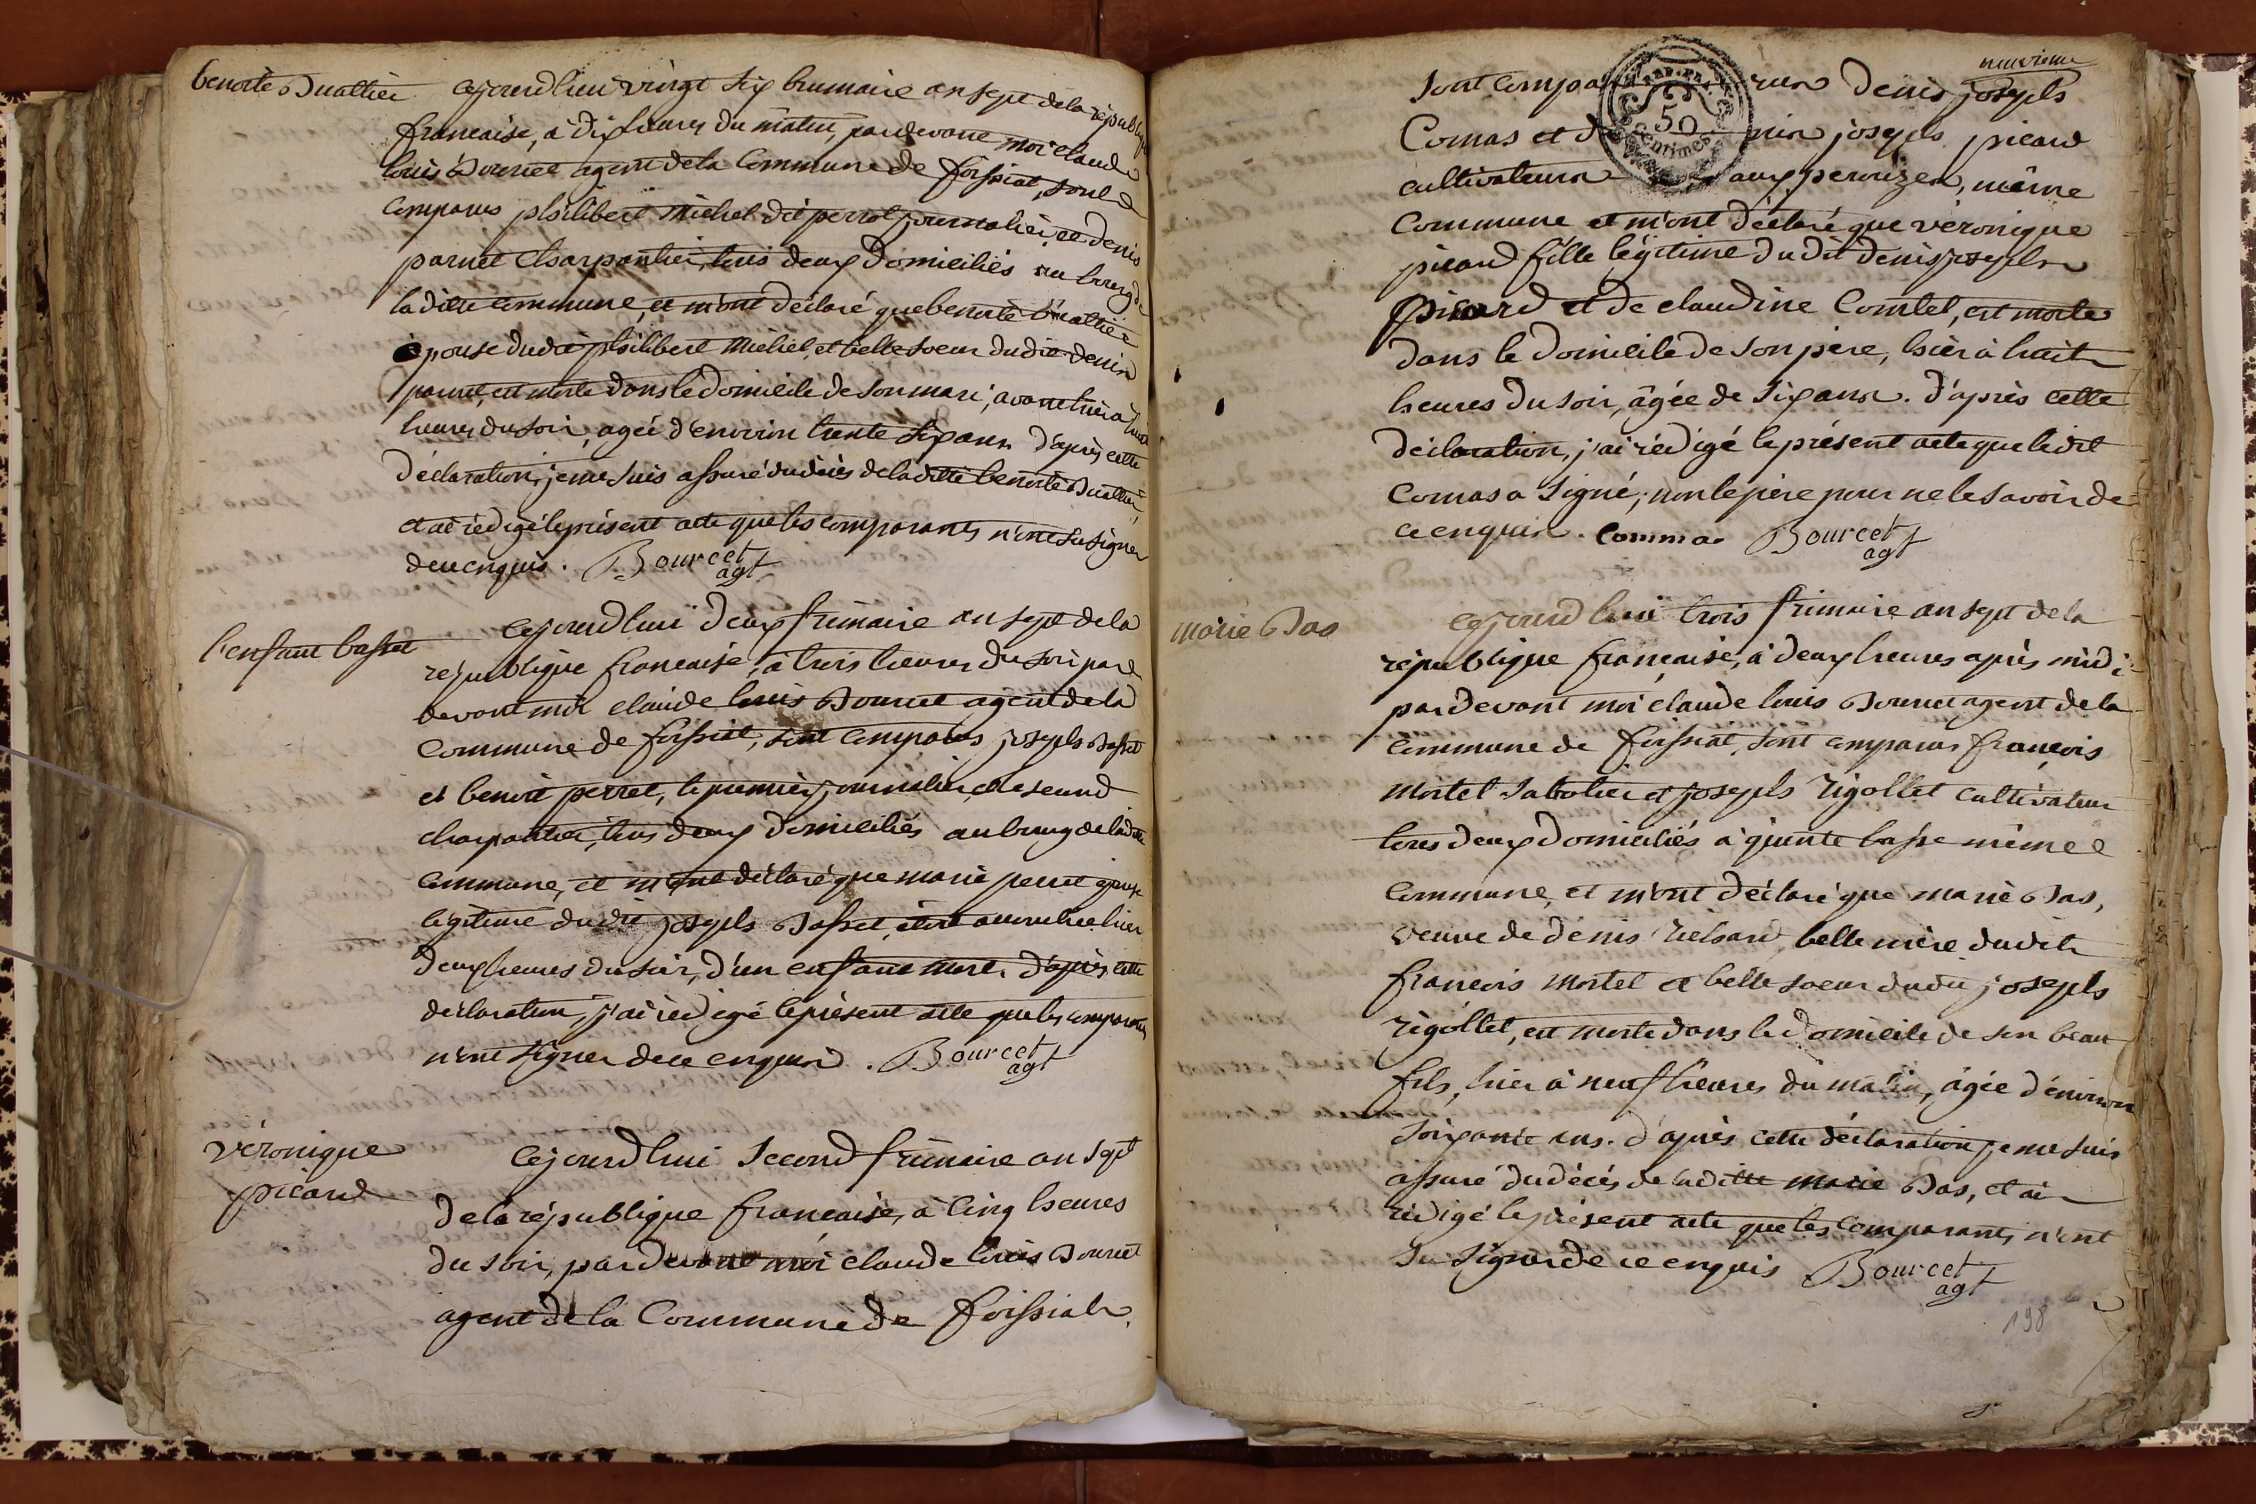 benoite Buattier
cejourdhui vingt six brumaire an sept de la république
francaise, à dix heures du matin, pardevant moi claude
louis Bourcet agent de la Commune de foissiat, sont
comparus philibert Michel dit perrot journalier, et denis
parnet charpantier, tous deux domiciliés au bourg de
ladite commune, et m'ont déclaré que benoite buattier
épouse dudit philibert Michel, et belle soeur dudit denis
parnet, est morte dans le domicile de son mari, avant hier à huit
heures du soir, agée d'environ trente six ans d'après cette
déclaration, je me suis assuré du décès de laditte benoite Buattier,
et ai rédigé le présent acte que les comparants n'ont su signer
de ce enquis. Bourcet
agt
l'enfant basset
cejourdhui deux frimaire an sept de la
république francaise, à trois heures du soir par
devant moi claude louis Bourcet agent de la
Commune de foissiat, sont comparus joseph Basset
et benoit perret, le premier journalier, et le second
charpantier, tous deux domiciliés au bourg de ladite
commune, et m'ont déclaré que marie perret épouse
légitime dudit joseph Basset, étoit accouchée hier
deux heures du soir, d'un enfant mort. d'après cette
déclaration, j'ai rédigé le présent acte que les comparants
n'ont signer de ce enquis. Bourcet
agt
véronique
picard
Cejourdhui second frimaire an sept
de la république francaise, à cinq heures
du soir, pardevant moi claude louis Bourcet
agent de la Commune de foissiat.
neuvieme
REP. FRA.
50
Centimes
sont compa denis joseph
Comas et joseph picard
cultivateurs aux perouzes, même
commune et m'ont déclaré que véronique
picard fille légitime du dit denis joseph
picard et de claudine Comtet, est morte
dans le domicile de son père, hier à huit
heures du soir, âgée de six ans. d'après cette
déclaration, j'ai rédigé le présent acte que ledit
comas a signé, non le père pour ne le savoir de
ce enquis. commas Bourcet
agt
marie Bas
cejourdhui trois frimaire an sept de la
république française, à deux heures après midi
pardevant moi claude louis Bourcet agent de la
commune de foissiat, sont comparus françois
Mortel sabotier et joseph rigollet cultivateur
tous deux domiciliés à quinte basse même
commune, et m'ont déclaré que marie Bas,
veuve de denis richard, belle mère dudit
francois Mortel et belle soeur dudit joseph
rigollet, est morte dans le domicile de son beau
fils, hier à neuf heures du matin, âgée d'environ
soixante ans. d'après cette déclaration, je me suis
assuré du décés de laditte marie Bas, et ai
rédigé le présent acte que les comparants n'ont
su signer de ce enquis Bourcet
agt
198